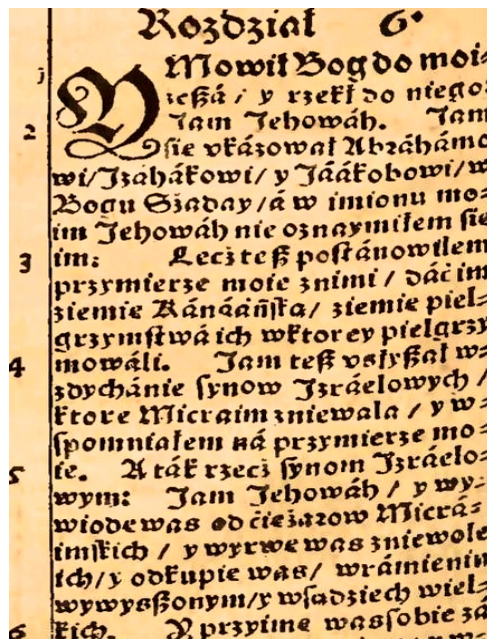 Rozdział 6.
1 Mowił Bog do moi-
zeßá / y rzekł do niego:
2 Jam Jehowáh. Jam
sie vkázował Abráhámo
wi / Jzahákowi / y Jáákobowi / w
Bogu Sżaday / á w imionu mo-
im Jehowáh nie oznaymiłem sie
3 im: Lecż teß postánowiłem
przymierze moie znimi / dáć im
ziemie Kánááńską / ziemie piel-
grzymstwá ich wktorey pielgrzy
mowáli.
4 Jam teß vsłyßał w-
zdychánie synow Jzráelowych /
ktore Micraim zniewala / y w-
spomniałem ná przymierze mo-
5 ie. A ták rzecż synom Jzráelo-
wym: Jam Jehowáh / y wy-
wiode was od ćieżarow Micrá-
imskich / y wyrwe was zniewole
ich / y odkupie was / wrámieniu
wywysßonym / y wsadziech wiel-
6 kich. Y przyime was sobie zá